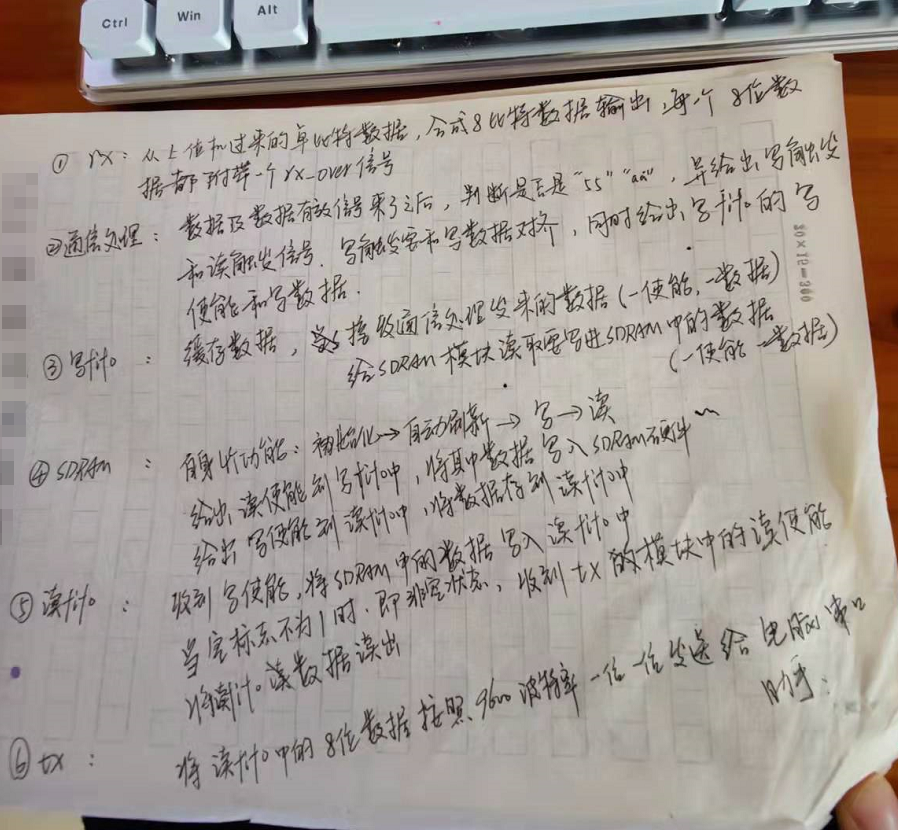 Ctrl
Win
Alt
① rx: 从上位机过来的单比特数据, 合成8比特数据输出, 每个8位数
据都附带一个rx_over信号
②通信处理: 数据及数据有效信号来了之后, 判断是否是"55" "aa", 并给出写触发
和读触发信号. 写触发要和写数据对齐, 同时给出写fifo的写
使能和写数据.
③写fifo: 缓存数据, 接收通信处理发来的数据 (一使能, 一数据)
给SDRAM模块读取要写进SDRAM中的数据
(一使能 一数据)
④SDRAM: 自身4个功能: 初始化→自动刷新→写→读
给出读使能到写fifo中, 将其中数据写入SDRAM硬件
给出写使能到读fifo中, 将数据存到读fifo中
⑤读fifo: 收到写使能, 将SDRAM中的数据写入读fifo中
当空标志不为1时. 即非空状态, 收到tx的模块中的读使能
将读fifo读数据读出
⑥tx: 将读fifo中的8位数据按照9600波特率一位一位发送给电脑串口
助手.
20×15=300